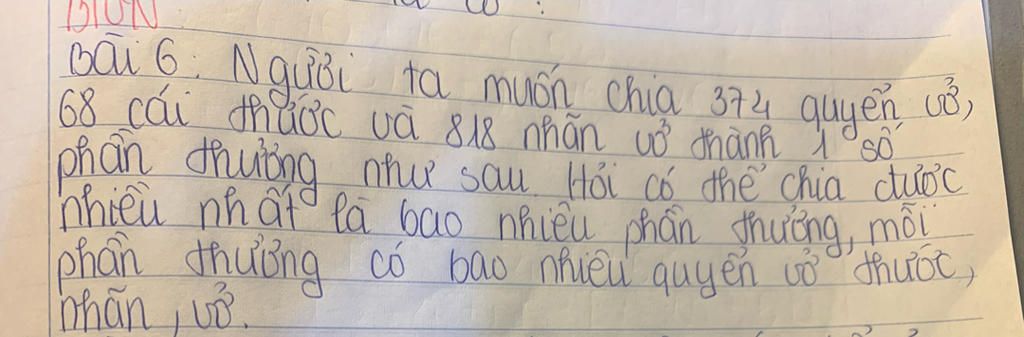 Bài 6: Người ta muốn chia 374 quyển vở,
68 cái thước và 818 nhãn vở thành 1 số
phần thưởng như sau. Hỏi có thể chia được
nhiều nhất là bao nhiêu phần thưởng, mỗi
phần thưởng có bao nhiêu quyển vở thước,
nhãn, vở.